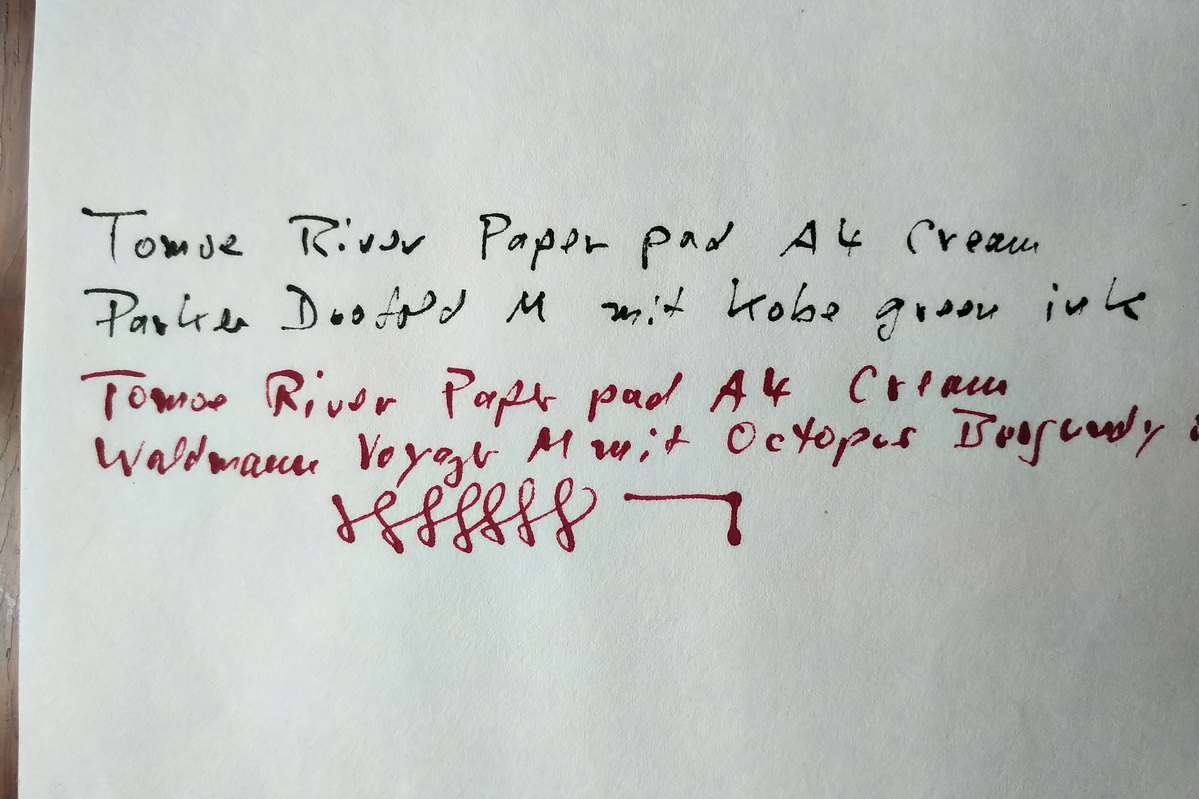 Tomoe River Paper pad A4 Cream
Parker Duofold M mit kobe green ink
Tomoe River Paper pad A4 Cream
Waldmann Voyage M mit Octopus Burgundy